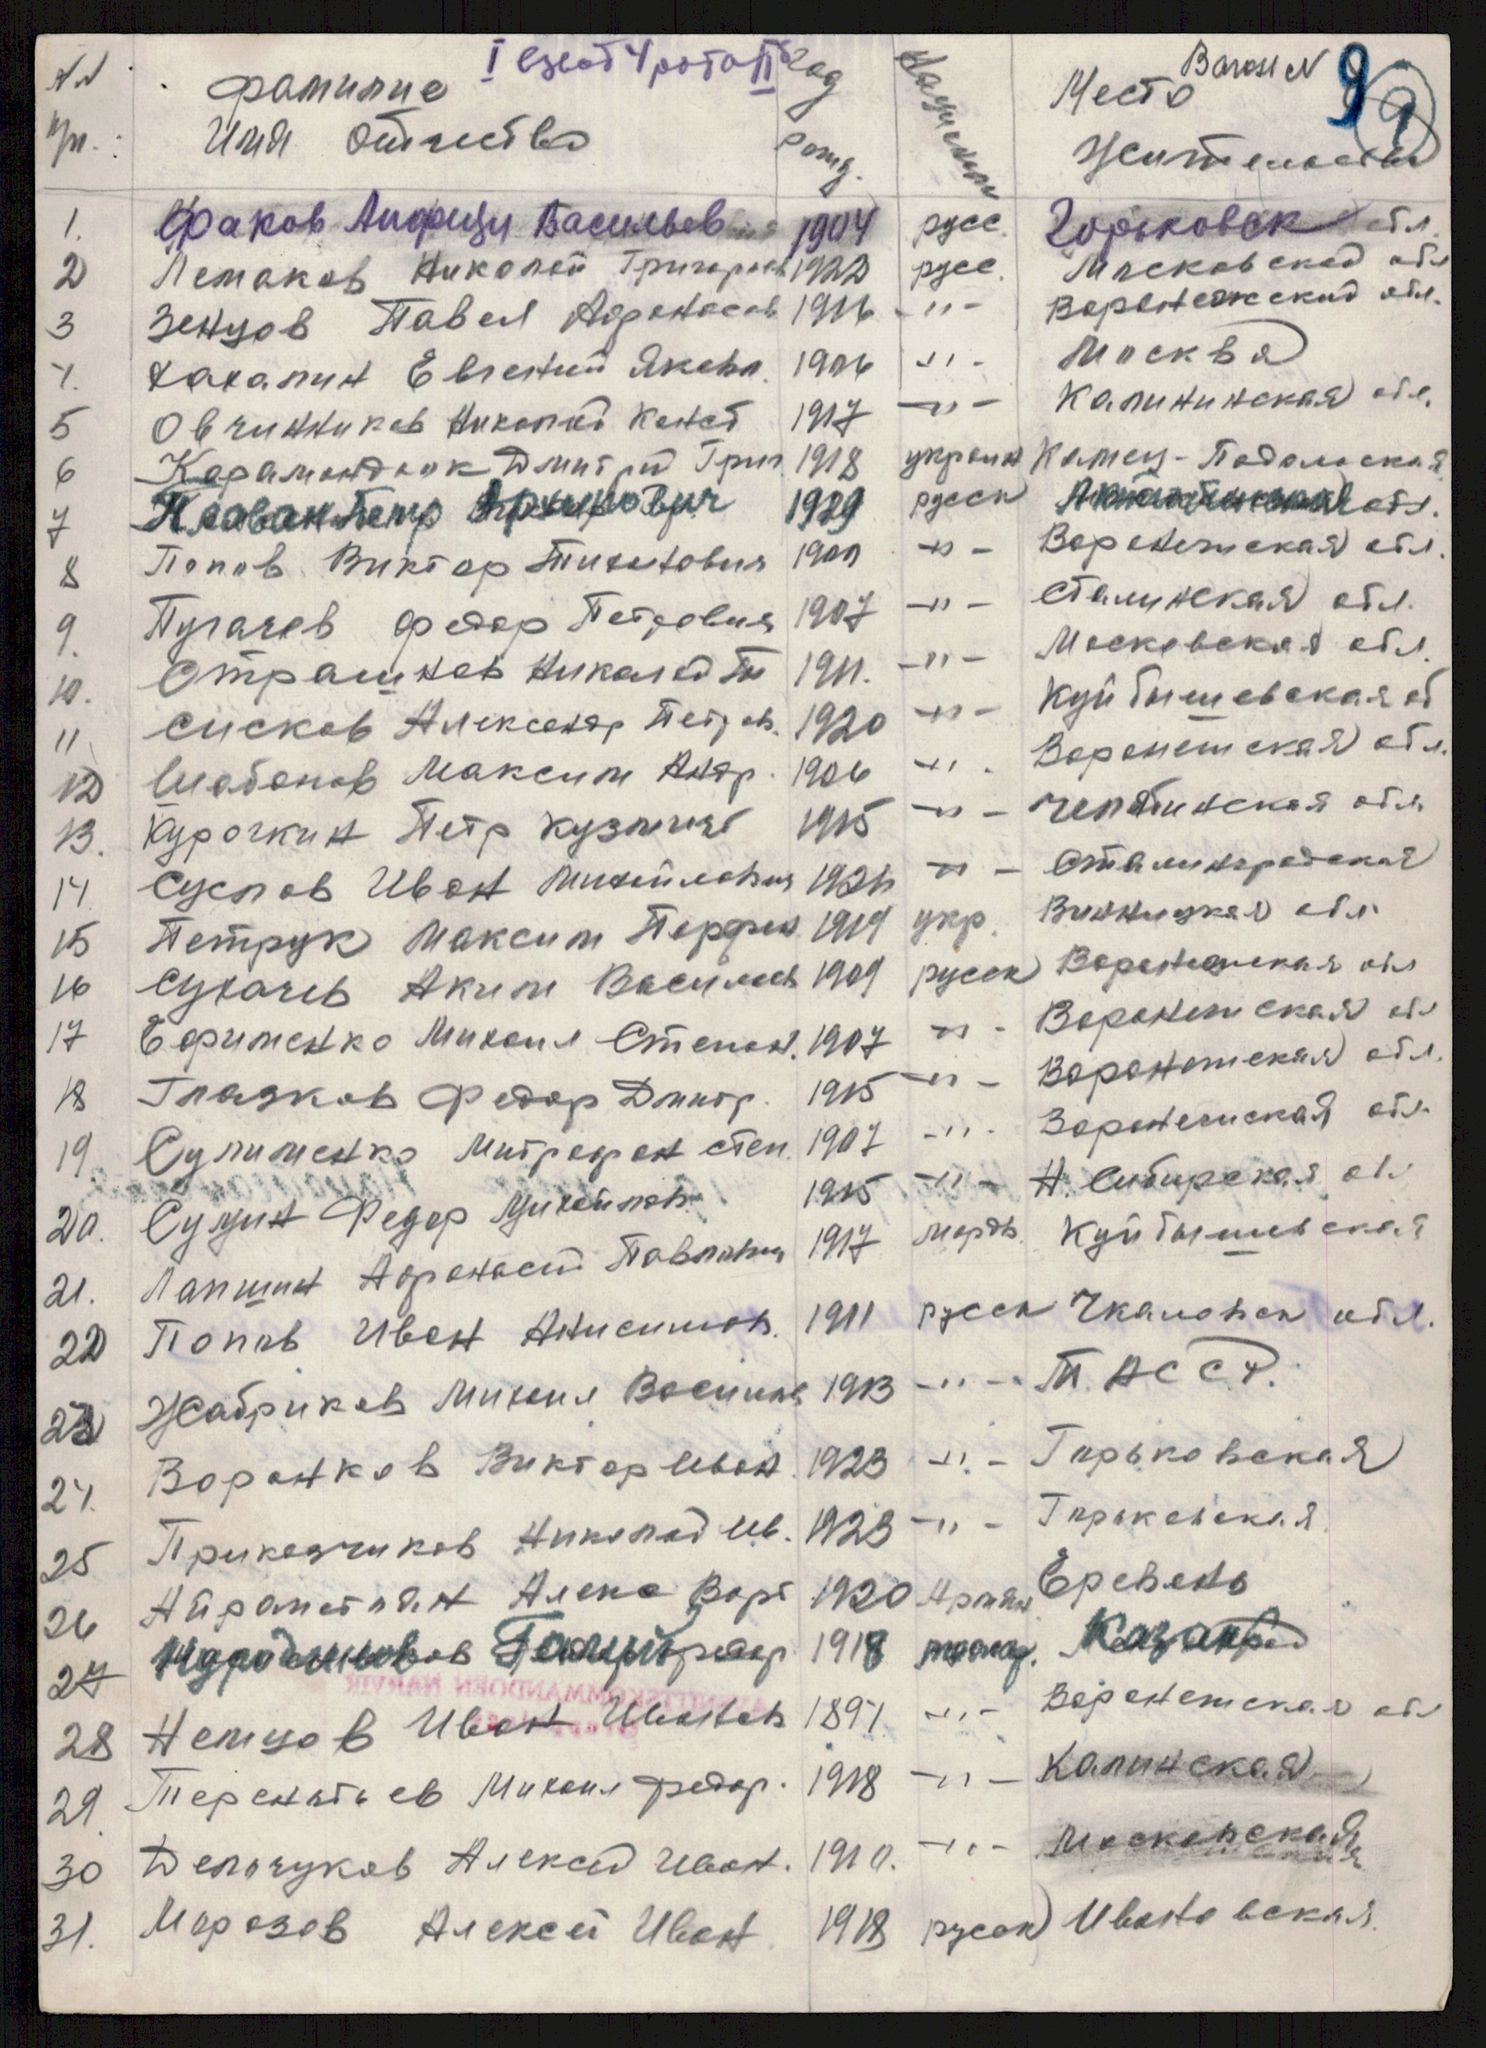 I взвод 4 рота II
Вагон N 9
9
NN пп. Фамилие Имя Отчество Год рожд. Национальн Место Жительства
1. Факов Васильев 1904 русс. Горьковск обл.
2 Лемаков Николай Григорьев 1922 русс. Московской обл
3 Зенцов Павел Афанасов 1916 -"- Воронежский обл.
4. Хахалин Евгений Яковл. 1906 -"- Москва
5 Овчинников Николай Конст 1917 -"- Калининская обл.
6 Карамондюк Дмитрий Григ 1918 украин Камец-Подольская
7 Петр 1929 русск обл.
8 Попов Виктор Тихонович 1900 -"- Воронежская обл.
9. Пугачев Федор Петрович 1907 -"- Сталинская обл.
10. Страшнов Николай Т 1911. -"- Московская обл.
11 Сисков Александр Петров. 1920 -"- Куйбышевская об
12 Шабанов Максим Андр. 1906 -"- Воронежская обл.
13. Курочкин Петр Кузмич 1915 -"- Челябинская обл.
14 Суслов Иван Михайлович -"- Сталинградская
15 Петрук Максим Перфен 1919 укр. Винницкая обл.
16 Сухачев Аким Васильев 1909 русск Воронежская обл
17 Ефименко Михаил Степан. 1907 -"- Воронежская обл
18 Глазков Федор Дмитр. 1915 -"- Воронежская обл.
19. Сулименко Митрофан Степ. 1907 -"- Воронежская обл.
20. Сущин Федор Михайлов. 1915 -"- Н. Сибирская обл
21. Лапшин Афонасий Павлович 1917 морд. Куйбышевская
22 Попов Иван Анисимов. 1911 русск Чкаловск обл.
23 Жабриков Михаил Василив 1913 -"- Т. АССР.
24. Воронков Виктор Иван. 1923 -"- Горьковская
25 Приказчиков Николай Ив. 1923 -"- Горьковская
26 Айрапетян Алекс Варт 1920 Армян. Еревань
27 1918 татар. Казань
28 Немцов Иван Иванов 1897. -"- Воронежская обл
29. Терентьев Михаил Федор. 1918 -"- Калинская
30 Демчуков Алексей Иван. 1910. -"- Московская
31. Морозов Алексей Иван 1918 русск Ивановская.